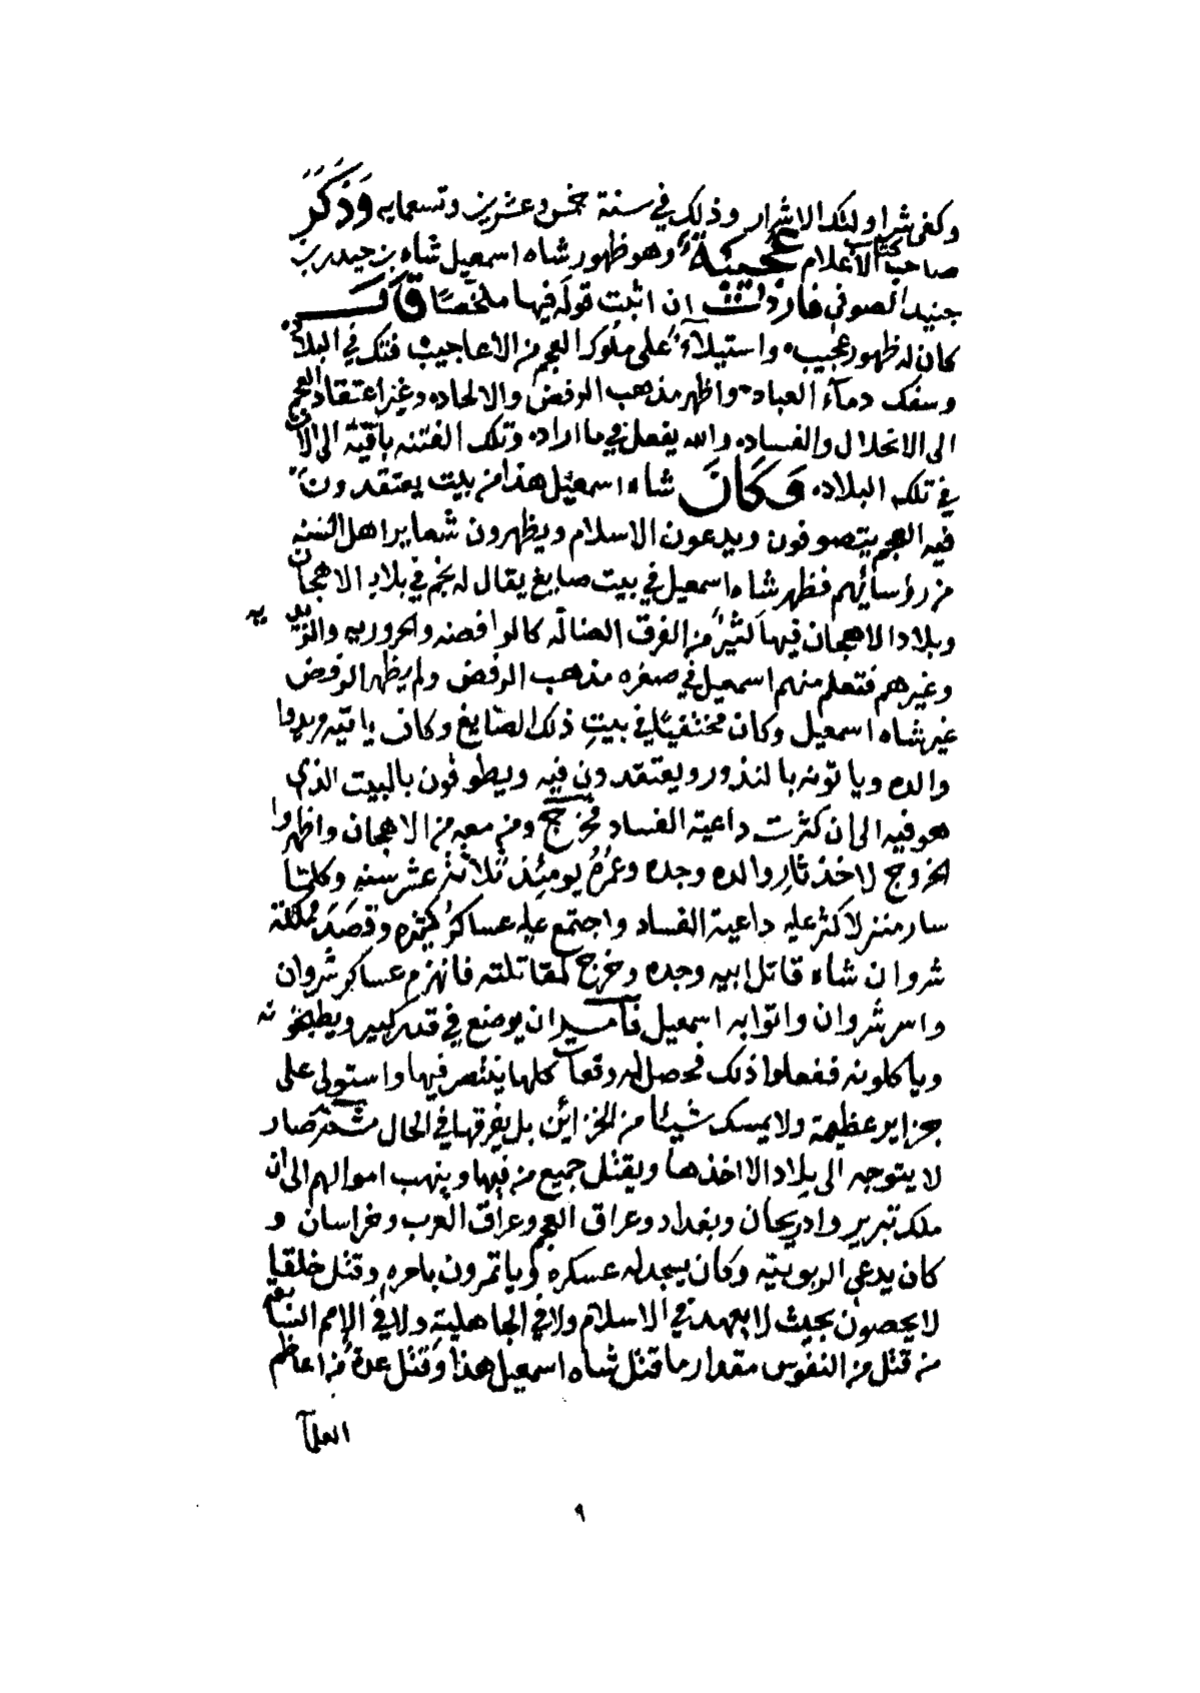 وكفى شر اولئك الاشرار وذلك في سنة خمس وعشرين وتسعمايه وَذَكَرَ
صاحب كتاب الاعلام عجيبَةً وهو ظهور شاه اسمعيل شاه بن حيدر بن
جنيد الصوفي فاردت ان اثبت قوله فيها ملخصًا قال
كان له ظهور عجيب، واستيلآء على ملوك العجم من الاعاجيب فتك في البلاد
وسفك دمآء العباد، واظهر مذهب الرفض والالحاد، وغير اعتقاد العجم
الى الانحلال والفساد، والله يفعل في ما اراد، وتلك الفتنه باقية الى الآن
في تلك البلاد، وَكَانَ شاه اسمعيل هذا من بيت يعتقدون
فيه العجم يتصوفون ويدعون الاسلام ويظهرون شعاير اهل السنه
من رؤسائهم فظهر شاه اسمعيل في بيت صايغ يقال له نجم في بلاد الاهجان
وبلاد الاهجان فيها كثيرٌ من الفرق الضاله كالرافضه والحروريه والزيديه
وغيرهم فتعلم منهم اسمعيل في صغره مذهب الرفض ولم يظهر الرفض
غير شاه اسمعيل وكان مختفيًا في بيتِ ذلك الصايغ وكان ياتيه مريدوا
والده وياتونه بالنذور ويعتقدون فيه ويطوفون بالبيت الذي
هو فيه الى ان كثرت داعية الفساد فخرج ومن معه من الاهجان واظهروا
الخروج لاخذ ثارِ والده وجده وعمُرُه يومئِذٍ ثلاثة عشر سنه وكلما
سار منزلا كثر عليه داعية الفساد واجتمع عليه عساكرُ كثيره وقصَدَ مملكة
شروان شاه قاتل ابيه وجده وخرج لمقاتلته فانهزم عساكر شروان
واسر شروان واتوا به اسمعيل فأمر ان يوضع في قدر كبير ويطبخونه
وياكلونه ففعلوا ذلك فحصل له وقعات كلها ينتصر فيها واستولى على
جزاير عظيمة ولا يمسك شيئا من الخزائن بل يفرقها في الحال ثم صار
لا يتوجه الى بلاد الا اخذها ويقتل جميع من فيها وينهب اموالهم الى ان
ملك تبريز واذربيجان وبغداد وعراق العجم وعراق العرب وخراسان و
كان يدعي الربوبيّه وكان يسجد له عسكره وياتمرون بامره وقتل خلقا
لا يحصون بحيث لا يعهد في الاسلام ولا في الجاهلية ولا في الامم السابقه
من قتل من النفوس مقدار ما قتل شاه اسمعيل هذا وقتل عدة من اعاظم
العلمآ
٩